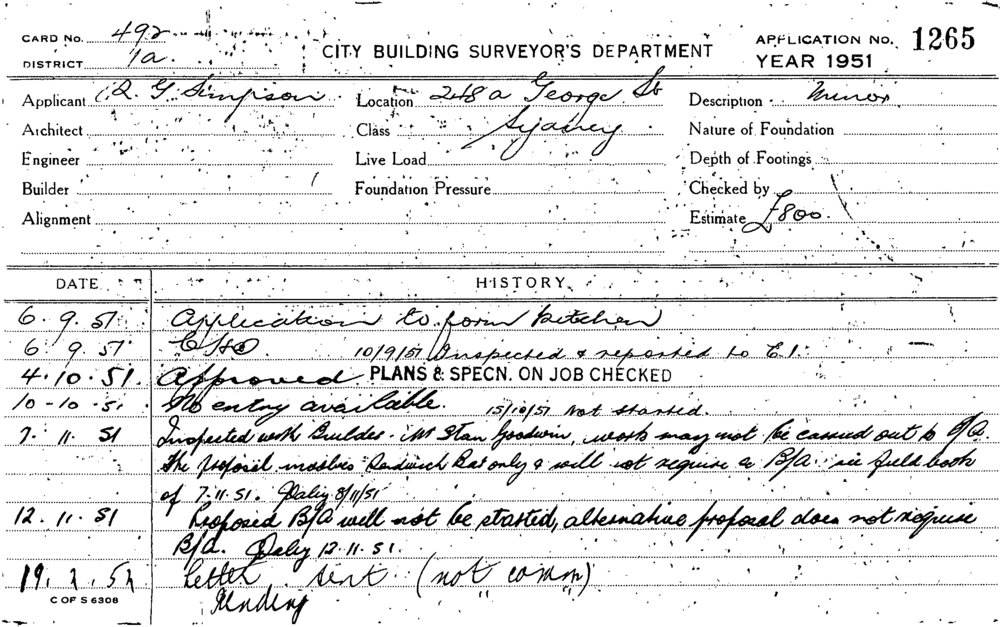 CARD No. 492
DISTRICT 1a.
CITY BUILDING SURVEYOR'S DEPARTMENT
APPLICATION No. 1265
YEAR 1951
Applicant G. Simpson Location 248a George St Description Minor
Architect Class Sydney Nature of Foundation
Engineer Live Load Depth of Footings
Builder Foundation Pressure Checked by
Alignment Estimate £800.
DATE HISTORY
6.9.51 Application to form Kitchen
6.9.51 CHO 10/9/51 Inspected & reported to E.I.
4.10.51. Approved PLANS & SPECN. ON JOB CHECKED
10-10-51 No entry available. 15/10/51 Not started.
7.11.51 Inspected with Builder. Mr Stan Goodwin, work may not be carried out to B/A.
The proposal involves Sandwich Bar only & will not require a B/A. see field book
of 7.11.51. Daley 8/11/51
12.11.51 Proposed B/A will not be started, alternative proposal does not require
B/A. Daley 12.11.51.
19.2.52 Letter sent (not comm)
Pending " "
C OF S 6308